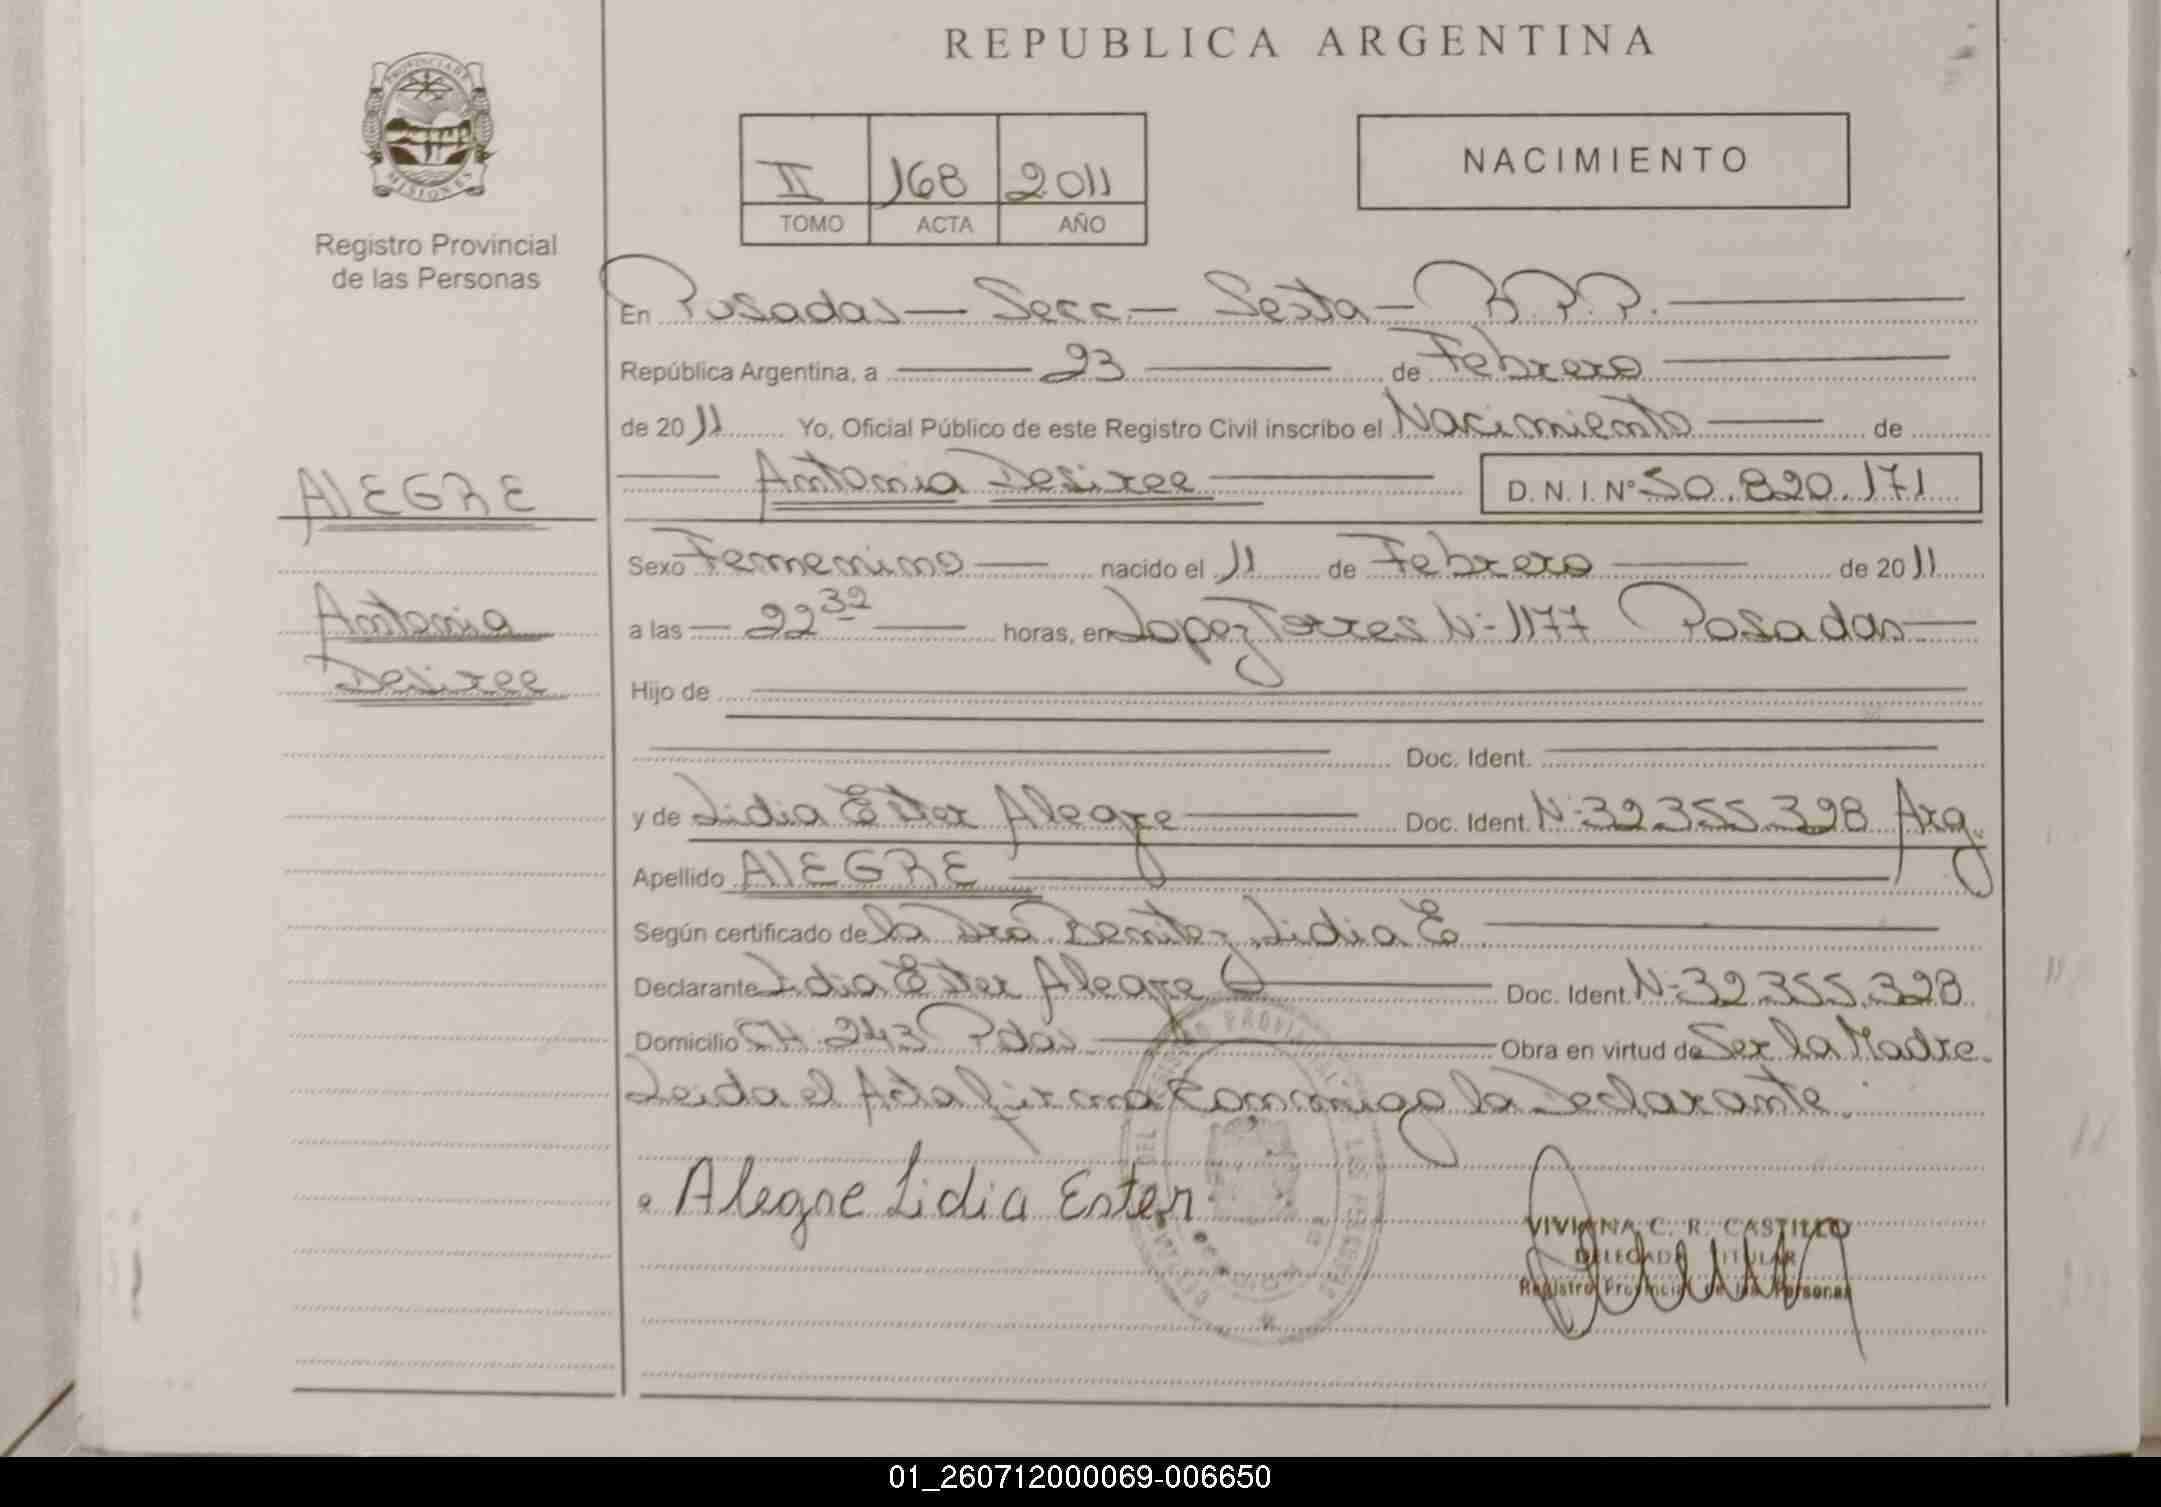 REPUBLICA ARGENTINA
PROVINCIA DE
MISIONES
Registro Provincial
de las Personas
II 168 2011
TOMO ACTA AÑO
NACIMIENTO
En Posadas — Secc. — Sexta — R.P.P.
República Argentina, a 23 de Febrero
de 2011 Yo, Oficial Público de este Registro Civil inscribo el Nacimiento de
Antonia Desiree D.N.I. Nº 50.820.171
ALEGRE
Antonia
Desiree
Sexo Femenino nacido el 11 de Febrero de 2011
a las 22 32 horas, en Lopez Torres Nº 1177 Posadas
Hijo de
Doc. Ident.
y de Lidia Ester Alegre Doc. Ident. Nº 32.355.328 Arg.
Apellido ALEGRE
Según certificado de la Dra Benitez Lidia E
Declarante Lidia Ester Alegre Doc. Ident. Nº 32.355.328
Domicilio CH. 243 Pdas Obra en virtud de Ser la Madre.
Leida el Acta firma conmigo la Declarante.
Alegre Lidia Ester
VIVIANA C. R. CASTILLO
DELEGADA TITULAR
Registro Provincial de las Personas
01_260712000069-006650